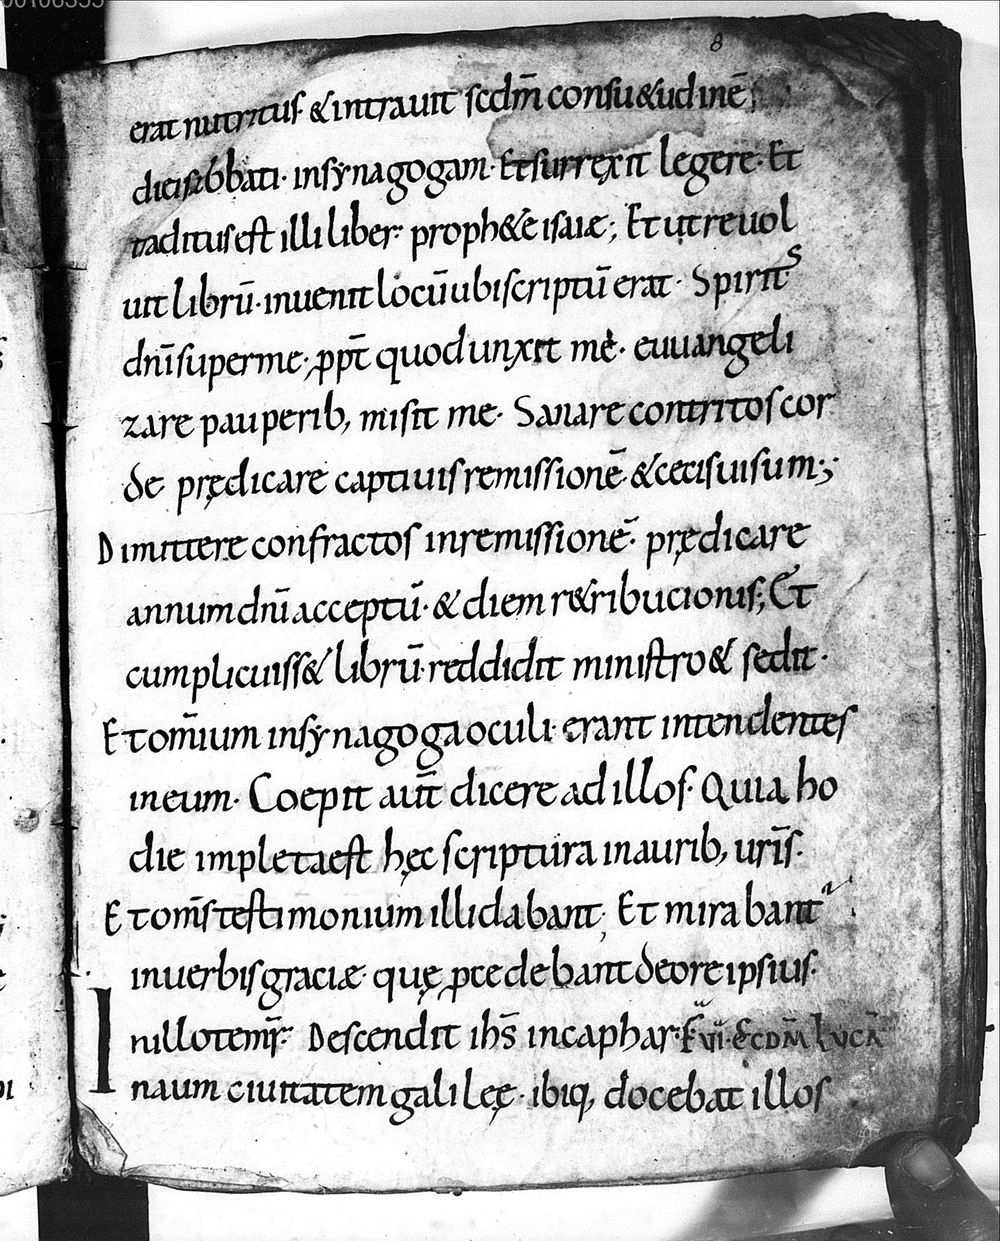 8
erat nutritus & intrauit scdm̄ consu&udinē
diei sabbati· in synagogam· Et surrexit legere· Et
traditus est illi liber· proph&e isaiæ; Et ut reuol
uit librū· inuenit locū ubi scriptū erat· Spirit͛
dn̄i super me· ꝓpt̄ quod unxit me· euuangeli
zare pauperib; misit me· Sanare contritos cor
de· prędicare captiuis remissionē· & cecis uisum;
Dimittere confractos in remissionē· prędicare
annum dn̄i acceptū· & diem r&ribucionis; Et
cum plicuiss& librū· reddidit ministro & sedit·
Et om̄ium in synagoga oculi· erant intendentes
in eum· Coepit aut̄ dicere ad illos· Quia ho
die impleta est hęc scriptura in aurib; uris̄·
Et om̄s testimonium illi dabant; Et mirabant᷑
in uerbis graciæ· quę ꝓcedebant de ore ipsius·
In illo temp̄r· Descendit ih̄s in caphar· F VI· SCDM̄ LVCĀ
naum ciuitatem galileę· ibiq; docebat illos